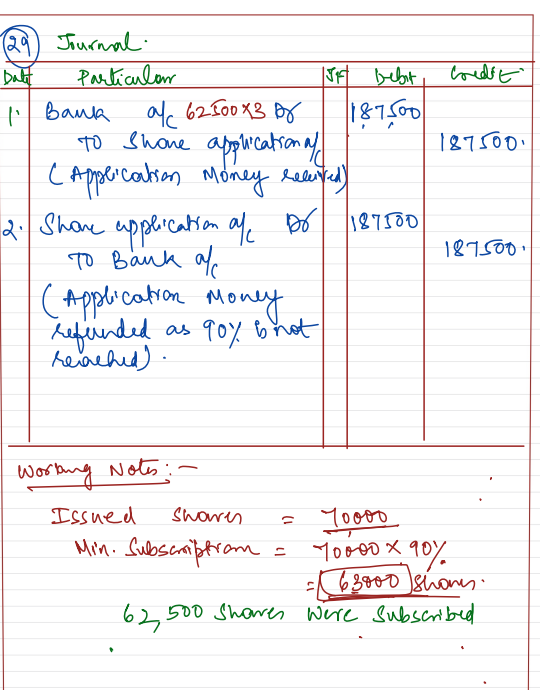 29 Journal.
Date Particulars JF Debit Credit
1. Bank a/c 62500×3 Dr 187500
To Share application a/c 187500.
(Application Money received)
2. Share application a/c Dr 187500
To Bank a/c 187500.
(Application Money
refunded as 90% is not
reached).
Working Notes:-
Issued shares = 70000
Min. Subscription = 70000 × 90%
= 63000 Shares.
62,500 Shares Were Subscribed